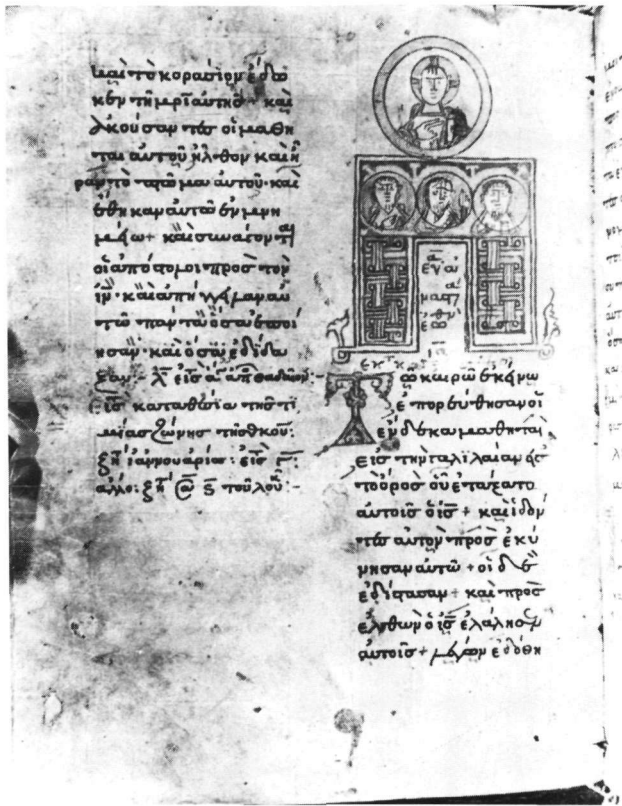 καὶ τὸ κοράσιον ἔδω
κεν τῆ μρὶ αὐτῆς + καὶ
ἀκούσαντες οἱ μαθη
ταὶ αὐτοῦ ἦλθον καὶ ἦ
ραν τὸ πτῶμα αὐτοῦ· καὶ
ἔθηκαν αὐτὼ ἐν μνη
μείω + καὶ συνάγονται
οἱ ἀπόστολοι πρὸς τὸν
ιν· καὶ ἀπήγγειλαν αὐ
τῶ πάντα ὅσα ἐποί
ησαν· καὶ ὅσα ἐδίδα
ξαν:
εἰς κατάθεσια τῆς τι
μίας ζώνης τῆς θκου:
ἰαννουαρίω: εἰς
ἄλλο: τοῦ λου:-
Τῶ καιρῶ ἐκείνω
ἐπορεύθησαν οἱ
ἕνδεκα μαθηταὶ
εἰς τὴν γαλιλαίαν εἰς
τὸ ὄρος οὗ ἐτάξατο
αὐτοῖς ὁ ις + καὶ ἰδόν
τες αὐτὸν προσεκύ
νησαν αὐτῶ + οἱ δὲ
ἐδίστασαν + καὶ προσ
ελθὼν ὁ ις ἐλάλησεν
αὐτοῖς + λέγων ἐδόθη